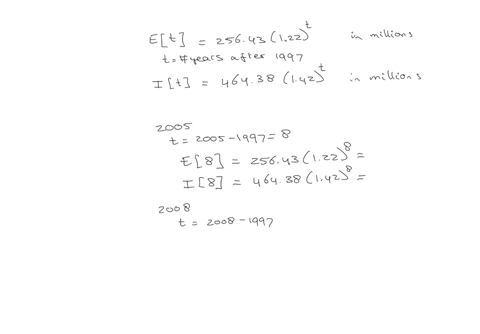 E[t] = 256.43 (1.22)^t in millions
t = # years after 1997
I[t] = 464.38 (1.42)^t in millions
2005
t = 2005 - 1997 = 8
E[8] = 256.43 (1.22)^8 =
I[8] = 464.38 (1.42)^8 =
2008
t = 2008 - 1997